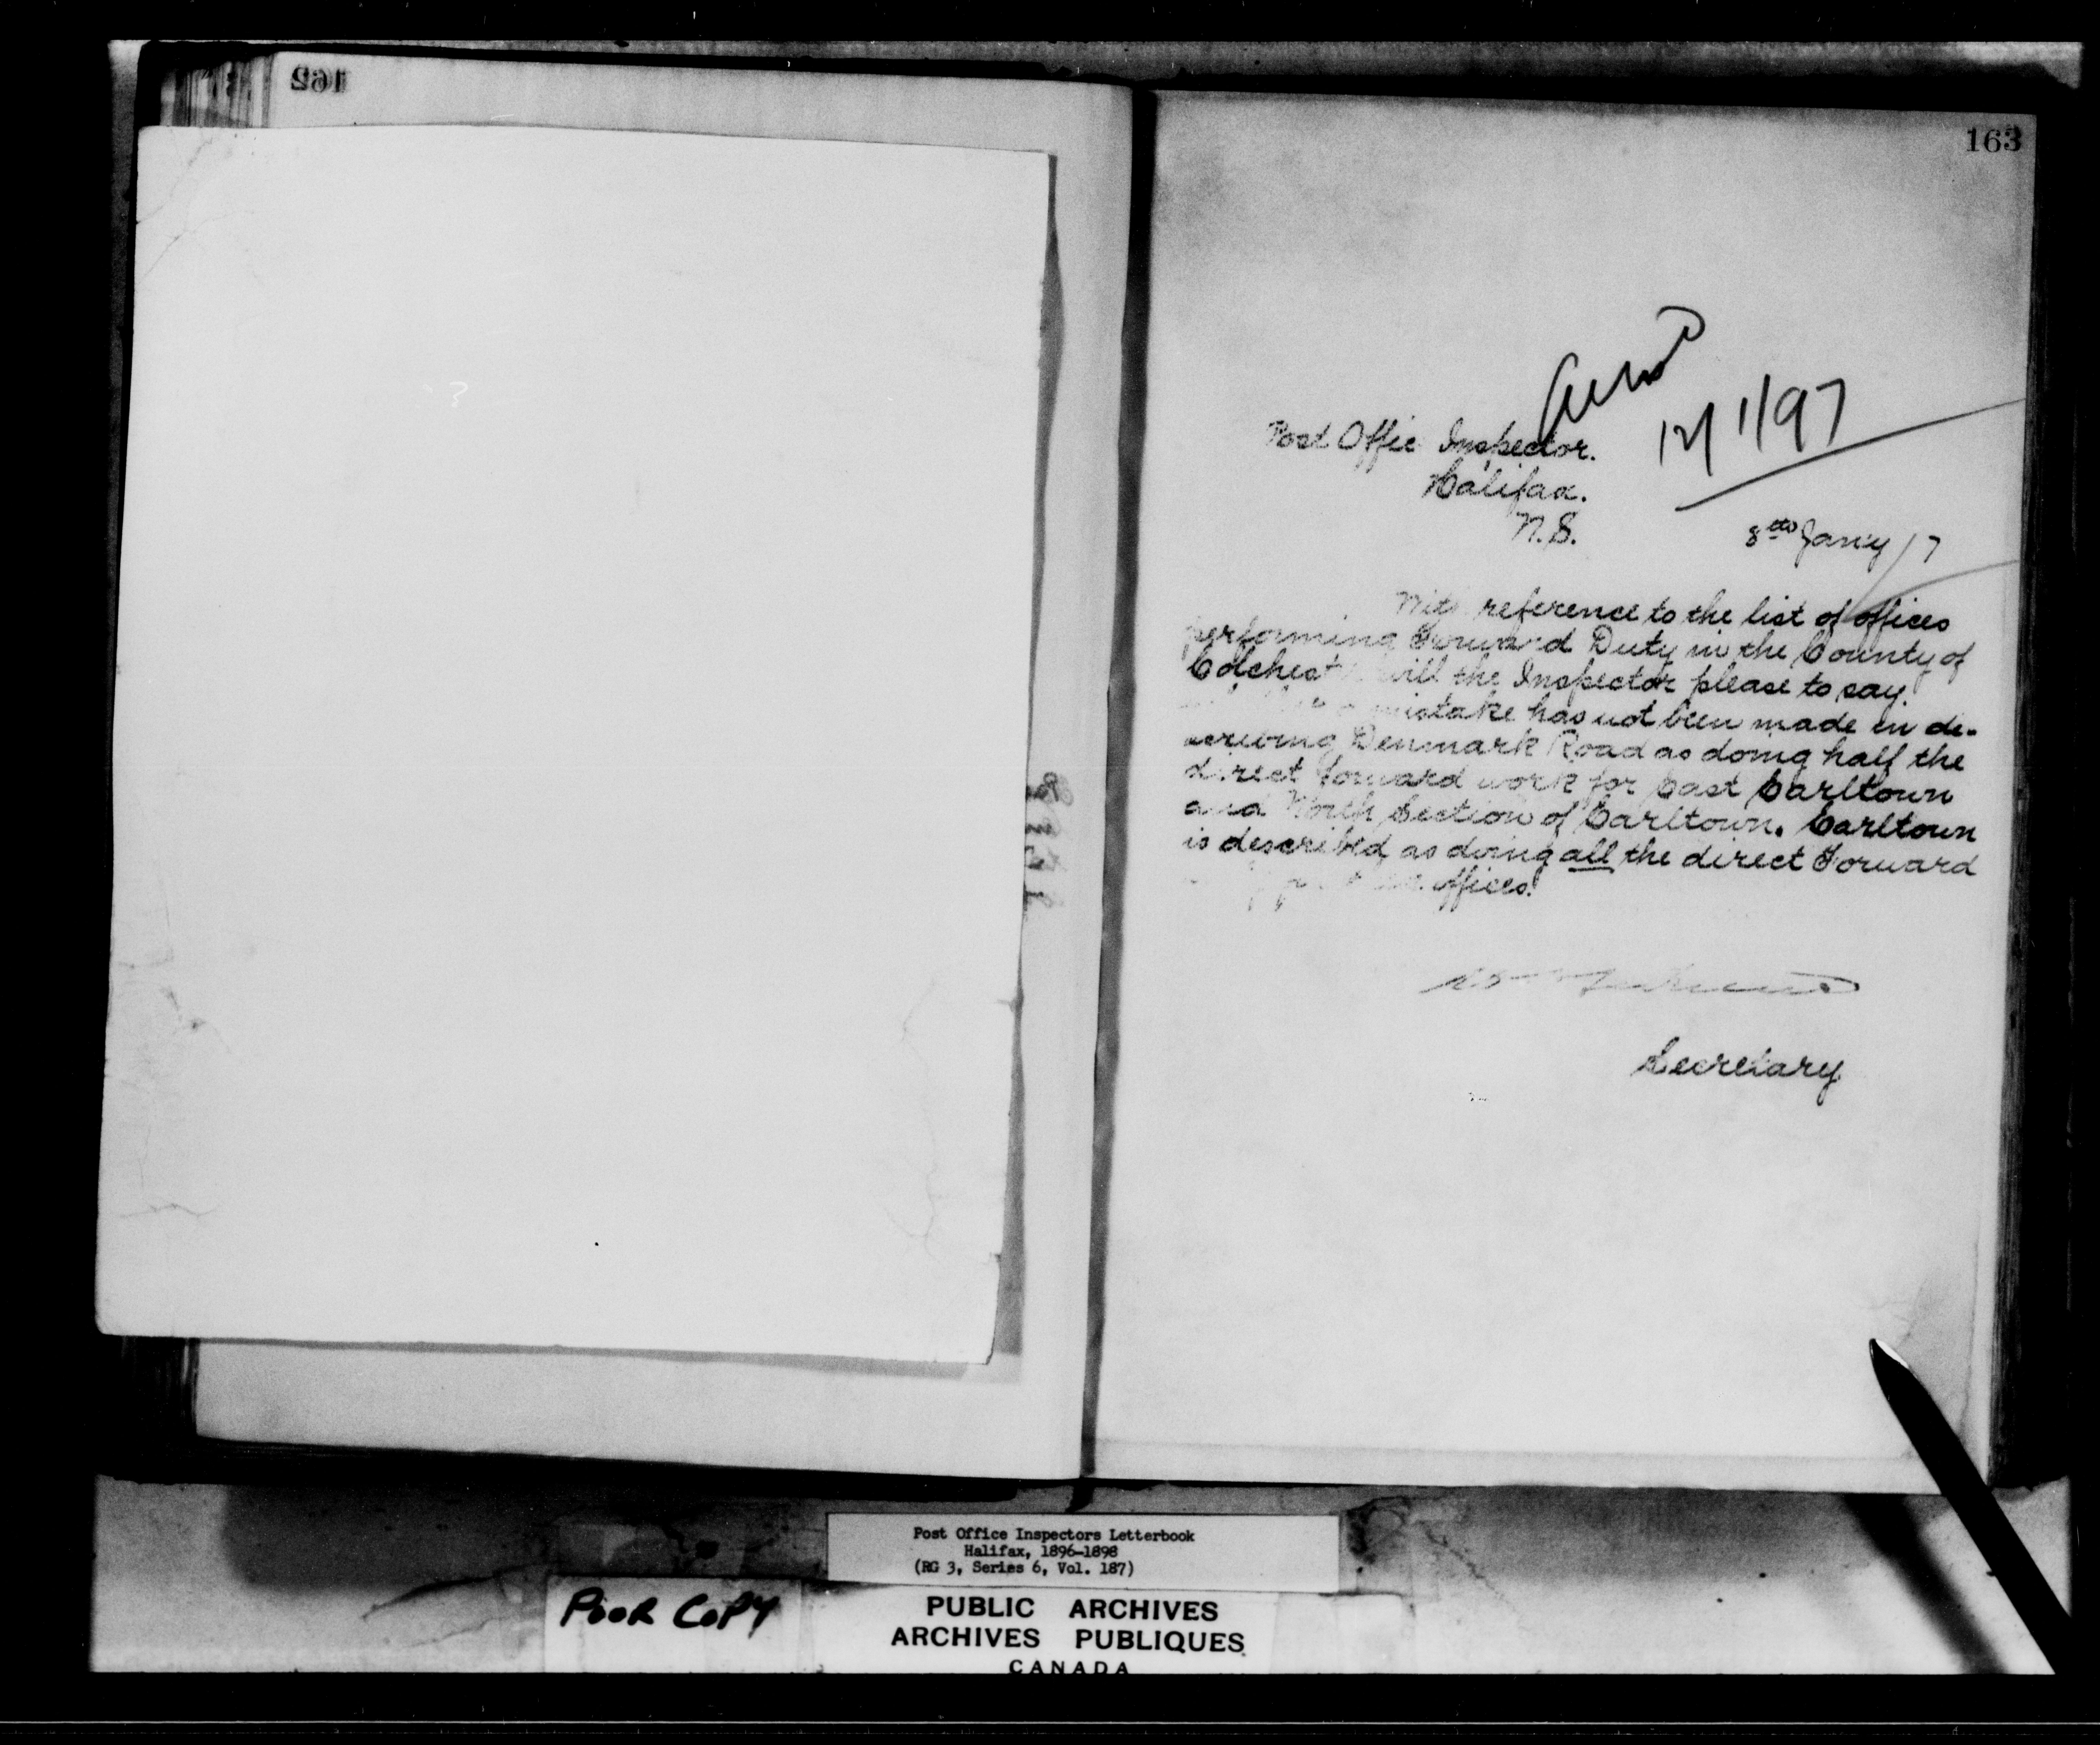 162
163
12/1/97
Post Offic Inspector.
Halifax.
N.S.
8th Jany /7
reference to the list of offices
performing Forward Duty in the County of
Colchest will the Inspector please to say
mistake has not been made in de-
scribing Denmark Road as doing half the
direct forward work for East Earltown
and North Section of Earltown. Earltown
is described as doing all the direct Forward
offices.
Secretary
Post Office Inspectors Letterbook
Halifax, 1896-1898
(RG 3, Series 6, Vol. 187)
POOR COPY
PUBLIC ARCHIVES
ARCHIVES PUBLIQUES
CANADA